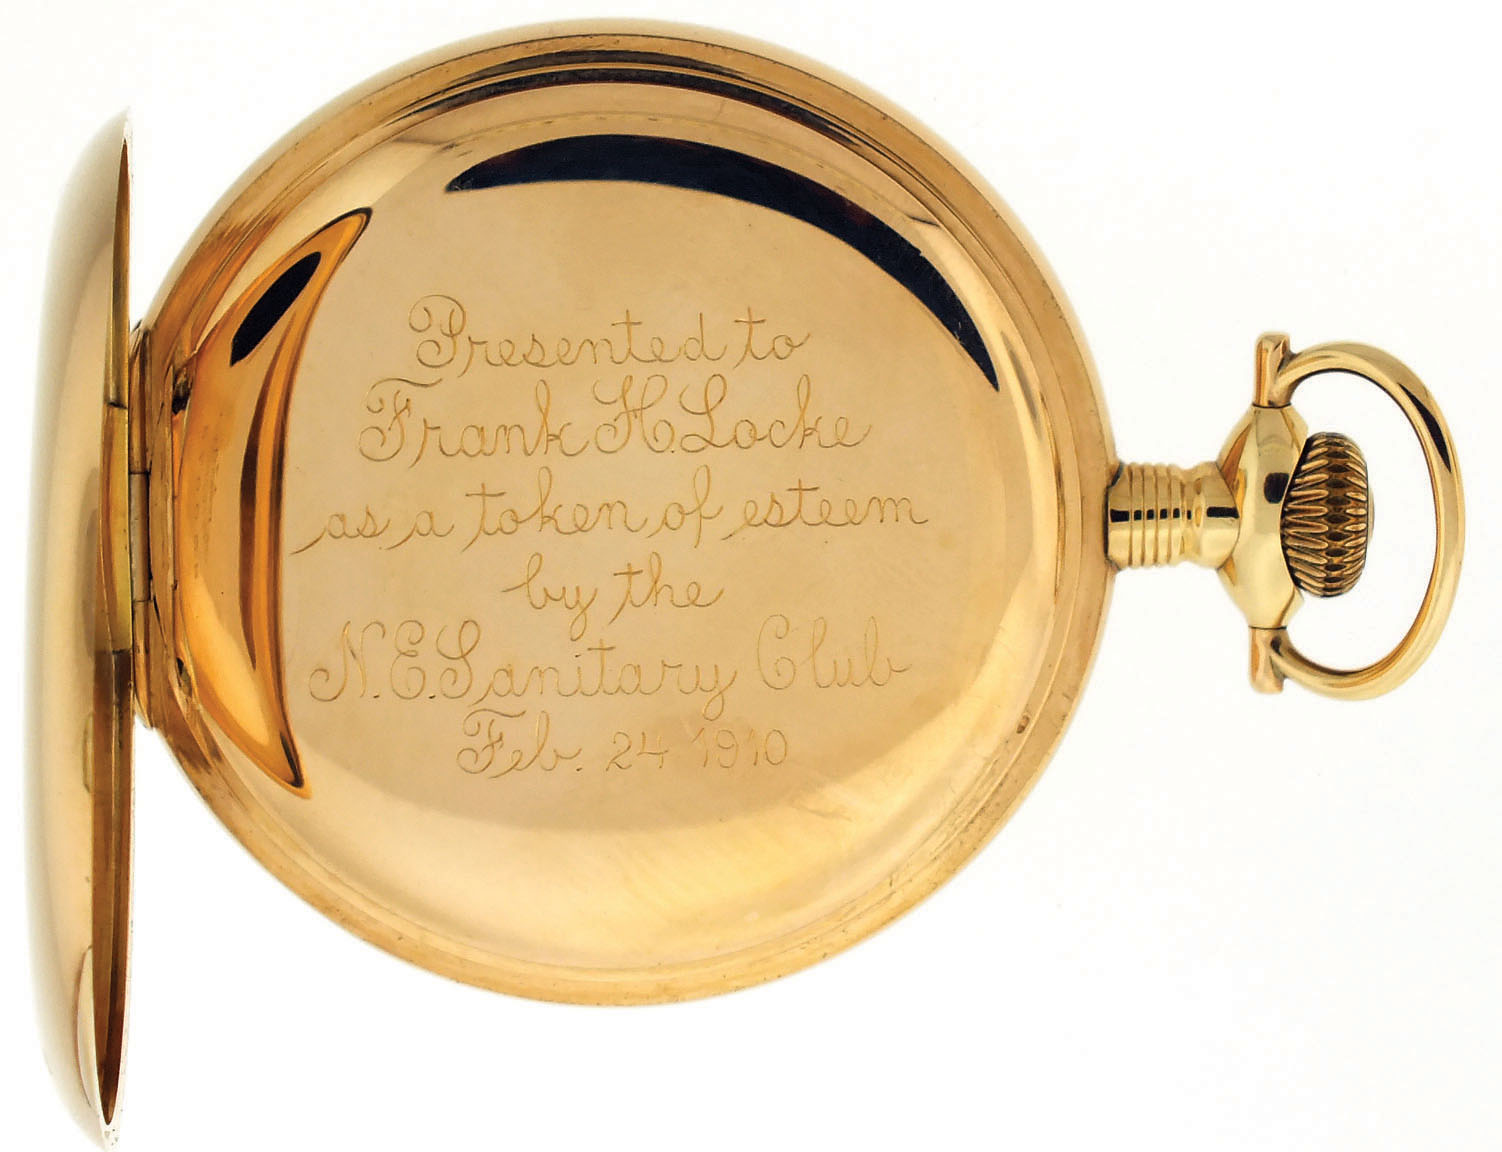 Presented to
Frank H. Locke
as a token of esteem
by the
N.E. Sanitary Club
Feb. 24 1910